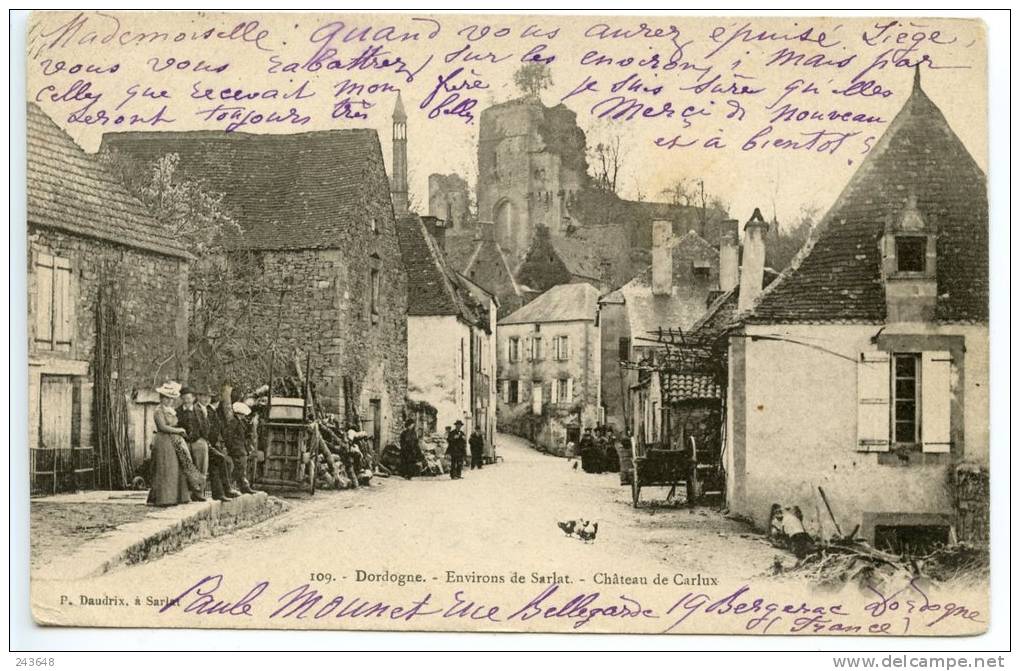 Mademoiselle: quand vous aurez épuisé Liège,
vous vous rabattrez sur les environs; mais par
celles que recevait mon frère je suis sûre qu'elles
seront toujours très belles. Merci de nouveau
et à bientôt?
109. - Dordogne. - Environs de Sarlat. - Château de Carlux
P. Daudrix, à Sarlat
Paule Mounet Rue Bellegarde 19 Bergerac Dordogne
(France)
243648
www.delcampe.net